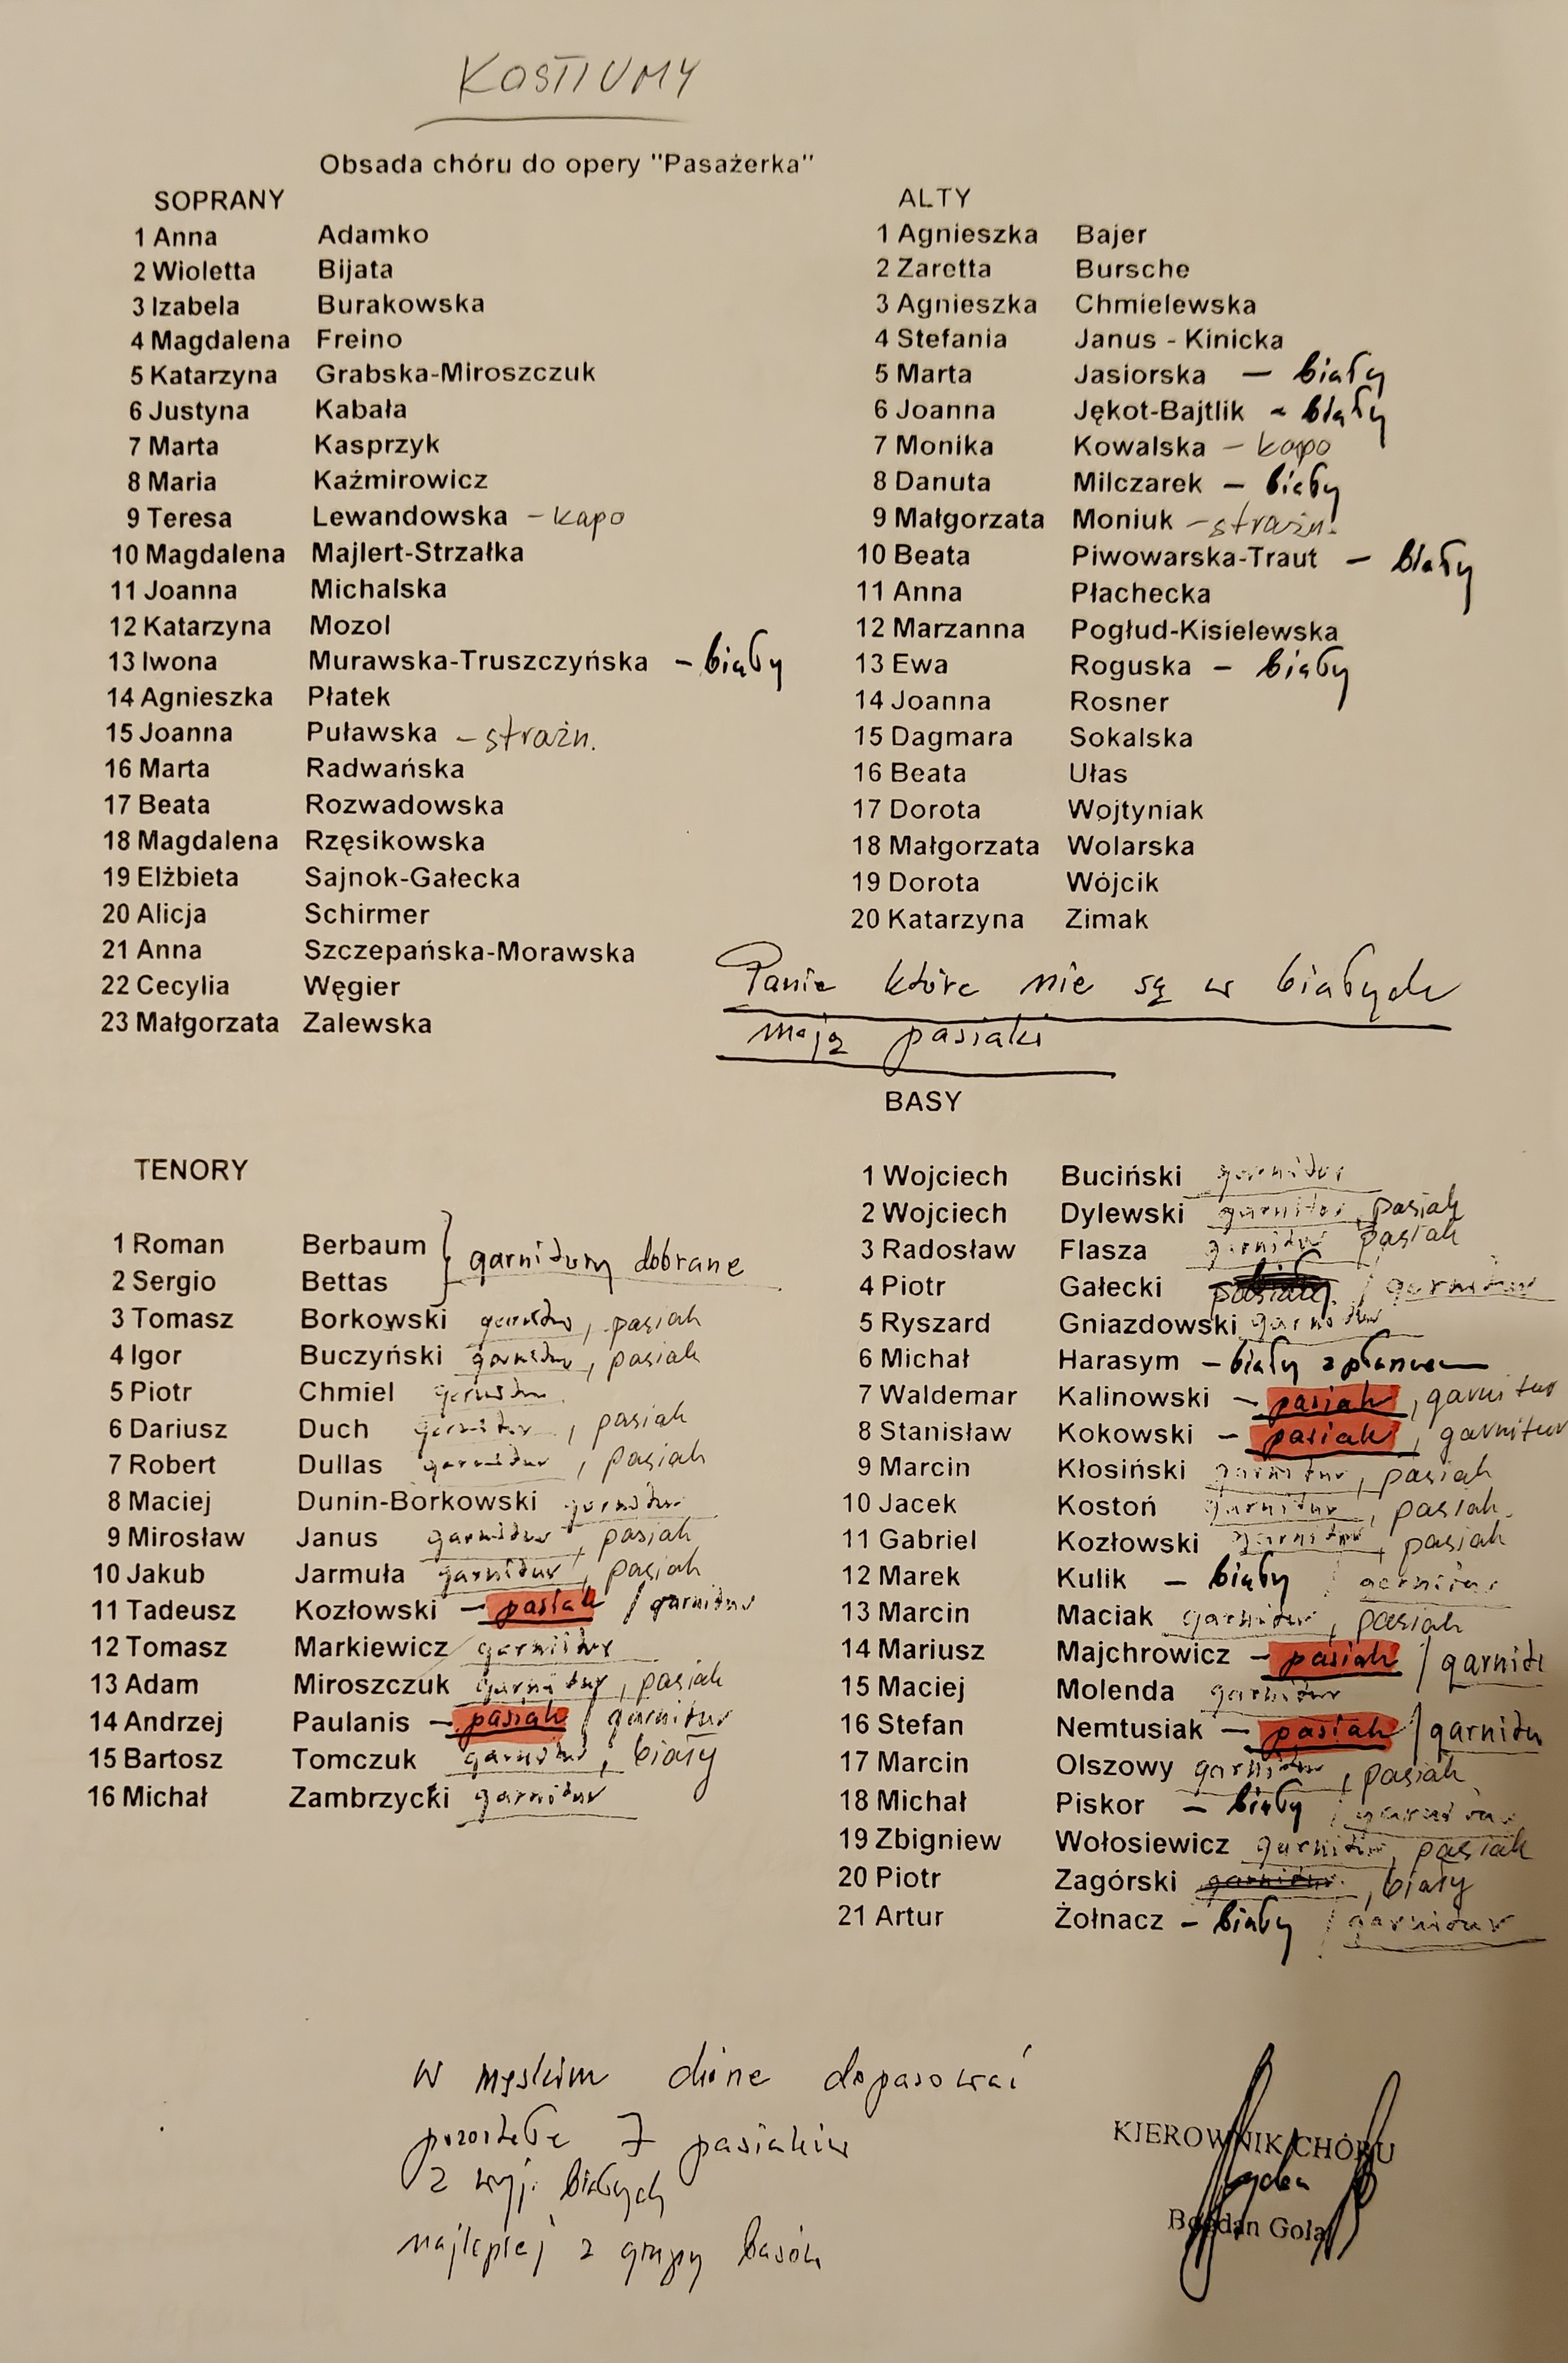 KOSTIUMY
Obsada chóru do opery "Pasażerka"
SOPRANY
1 Anna Adamko
2 Wioletta Bijata
3 Izabela Burakowska
4 Magdalena Freino
5 Katarzyna Grabska-Miroszczuk
6 Justyna Kabała
7 Marta Kasprzyk
8 Maria Kaźmirowicz
9 Teresa Lewandowska - kapo
10 Magdalena Majlert-Strzałka
11 Joanna Michalska
12 Katarzyna Mozol
13 Iwona Murawska-Truszczyńska - biały
14 Agnieszka Płatek
15 Joanna Puławska - strażn.
16 Marta Radwańska
17 Beata Rozwadowska
18 Magdalena Rzęsikowska
19 Elżbieta Sajnok-Gałecka
20 Alicja Schirmer
21 Anna Szczepańska-Morawska
22 Cecylia Węgier
23 Małgorzata Zalewska
ALTY
1 Agnieszka Bajer
2 Zaretta Bursche
3 Agnieszka Chmielewska
4 Stefania Janus - Kinicka
5 Marta Jasiorska - biały
6 Joanna Jękot-Bajtlik - biały
7 Monika Kowalska - kapo
8 Danuta Milczarek - biały
9 Małgorzata Moniuk - strażn.
10 Beata Piwowarska-Traut - biały
11 Anna Płachecka
12 Marzanna Pogłud-Kisielewska
13 Ewa Roguska - biały
14 Joanna Rosner
15 Dagmara Sokalska
16 Beata Ułas
17 Dorota Wojtyniak
18 Małgorzata Wolarska
19 Dorota Wójcik
20 Katarzyna Zimak
Panie które nie są w białych
mają pasiaki
TENORY
1 Roman Berbaum
2 Sergio Bettas
garnitury dobrane
3 Tomasz Borkowski garnitur, pasiak
4 Igor Buczyński garnitur, pasiak
5 Piotr Chmiel garnitur
6 Dariusz Duch garnitur, pasiak
7 Robert Dullas garnitur, pasiak
8 Maciej Dunin-Borkowski garnitur
9 Mirosław Janus garnitur, pasiak
10 Jakub Jarmuła garnitur, pasiak
11 Tadeusz Kozłowski - pasiak / garnitur
12 Tomasz Markiewicz garnitur
13 Adam Miroszczuk garnitur, pasiak
14 Andrzej Paulanis - pasiak / garnitur
15 Bartosz Tomczuk garnitur, biały
16 Michał Zambrzycki garnitur
BASY
1 Wojciech Buciński garnitur
2 Wojciech Dylewski garnitur, pasiak
3 Radosław Flasza garnitur pasiak
4 Piotr Gałecki / garnitur
5 Ryszard Gniazdowski garnitur
6 Michał Harasym - biały z
7 Waldemar Kalinowski - pasiak, garnitur
8 Stanisław Kokowski - pasiak, garnitur
9 Marcin Kłosiński garnitur, pasiak
10 Jacek Kostoń garnitur, pasiak
11 Gabriel Kozłowski garnitur, pasiak
12 Marek Kulik - biały / garnitur
13 Marcin Maciak garnitur, pasiak
14 Mariusz Majchrowicz - pasiak / garnitu
15 Maciej Molenda garnitur
16 Stefan Nemtusiak - pasiak / garnitu
17 Marcin Olszowy garnitur, pasiak
18 Michał Piskor - biały / garnitur
19 Zbigniew Wołosiewicz garnitur, pasiak
20 Piotr Zagórski garnitur, biały
21 Artur Żołnacz - biały / garnitur
W męskim chórze dopasować
pozostałe 7 pasiaków
z wyj. białych
najlepiej z grupy basów
KIEROWNIK CHÓRU
Bogdan Gola